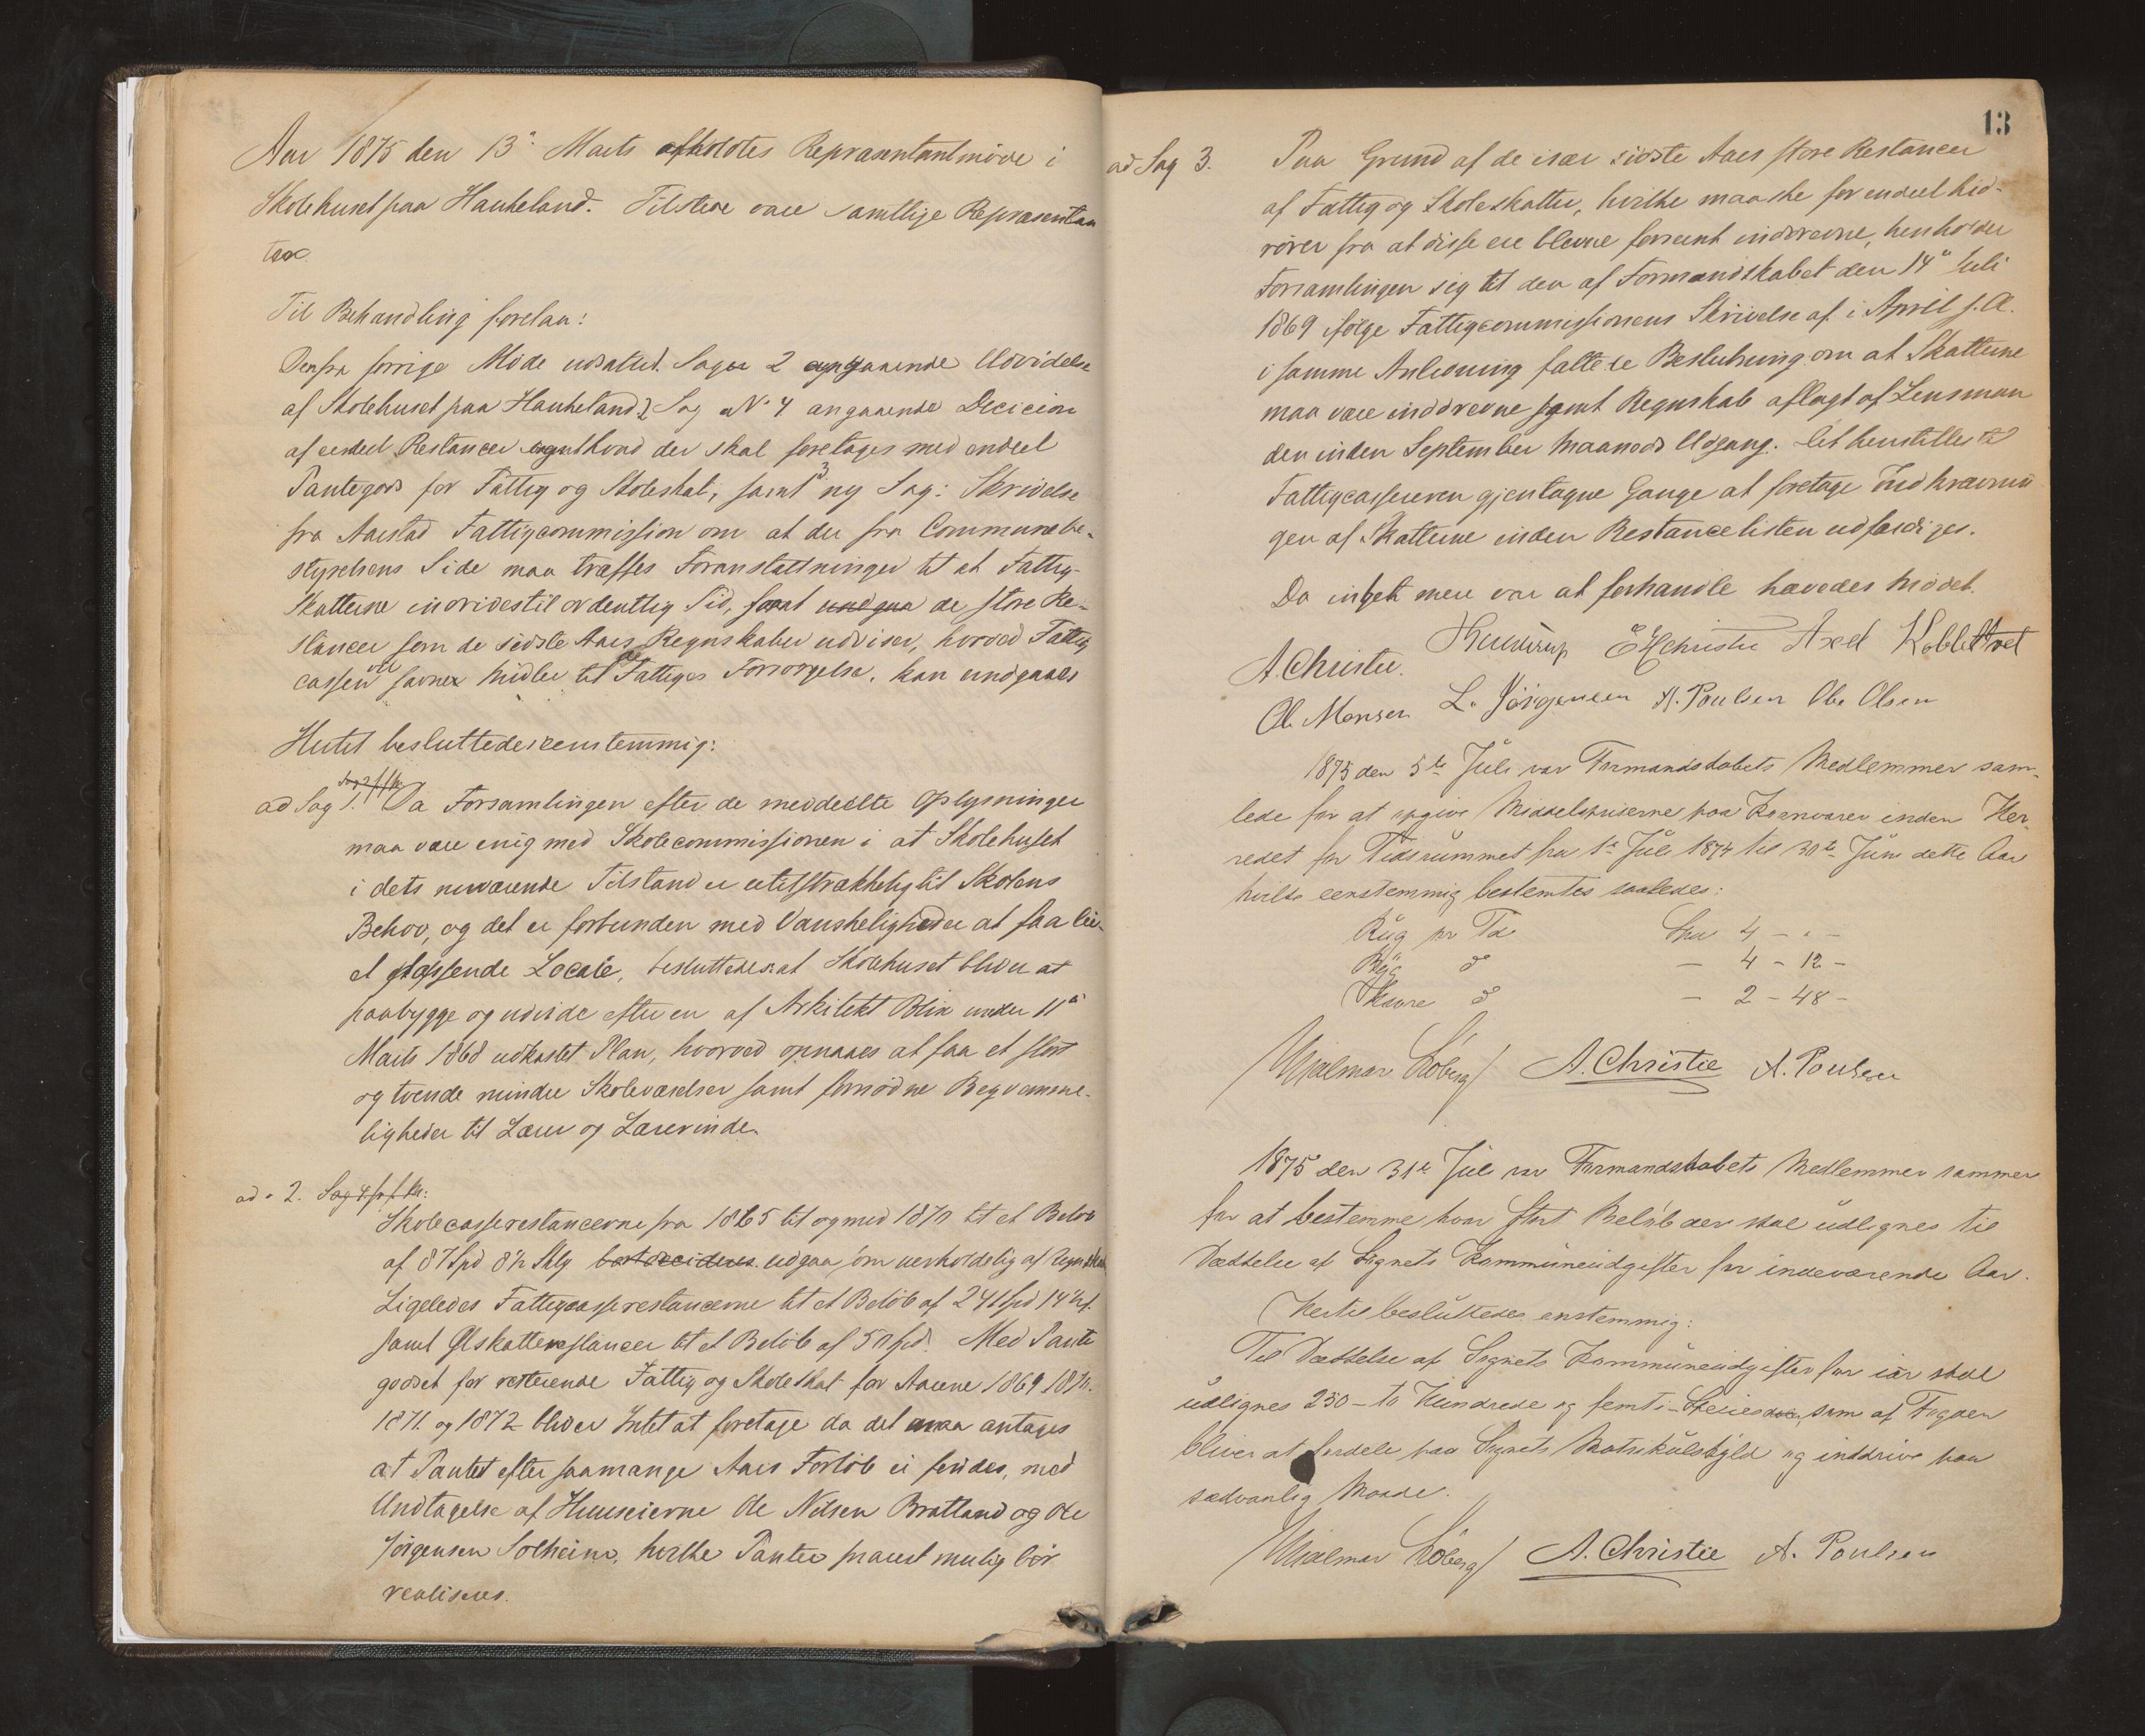 Aar 1875 den 13de Marts afholdtes Repræsentantmøde i
Skolehuset paa Haukeland. Tilstede vare samtlige Repræsentan
ter.
Til Behandling forelaa:
Den fra forrige Møde udsatte Sag 2 angaaende Udvidelse
af Skolehuset paa Haukeland, Sag No 4 angaaende Decicion
af eendeel Restancer samt hvad der skal foretages med endeel
Pantegods for Fattig og Skoleskat, samt 3 ny Sag: Skrivelse
fra Aarstad Fattigcommission om at der fra Communebe-
styrelsens Side maa træffes Foranstaltninger til at Fattig-
Skatterne inddrives til ordentlig Tid, saaat undgaa de store Re-
stancer som de sidste Aars Regnskaber udviser, hvorved Fattig
cassen savner Midler til de Fattiges Forsørgelse, kan undgaaes
Hertil besluttedes eenstemmig:
ad Sag 1. Da Forsamlingen efter de meddeelte Oplysninger
maa være enig med Skolecommissionen i at Skolehuset
i dets nuværende Tilstand er utilstrækkelig til Skolens
Behov, og det er forbunden med Vanskeligheder at faa leie
et passende Locale, besluttedes at Skolehuset bliver at
paabygge og udvide efter en af Arkitekt Blix under 11te
Marts 1868 udkastet Plan, hvorved opnaaes at faa et stort
og tvende mindre Skoleværelser samt fornødne Beqvemme-
ligheder til Lærer og Lærerinde.
ad " 2. Sag 4 f. f. M.:
Skolecasserestancerne fra 1865 til og med 1870 til et Beløb
af 87 Spd 8½ Skg bortdecideres udgaa som uerholdelig af Regnskab
Ligeledes Fattigcasserestancerne til et Beløb af 241 Spd 14½ s.
samt Ølskatterestancer til et Beløb af 50 Spd. Med Pante
godset for resterende Fattig og Skoleskat for Aarene 1869 1870.
1871. og 1872 bliver Intet at foretage da det maa antages
at Pantet efter saamange Aars Forløb ei findes, med
Undtagelse af Huuseierne Ole Nilsen Bratland og Ole
Jørgensen Solheim, hvilke Panter snarest mulig bør
realiseres.
13
ad Sag 3. Paa Grund af de især sidste Aars store Restancer
af Fattig og Skoleskatter, hvilke maaske for endeel hid-
rører fra at disse ere blevne forseent inddrevne, henholder
Forsamlingen sig til den af Formandskabet den 14de Juli
1869 ifølge Fattigcommissionens Skrivelse af i April s. A.
i samme Anledning fattede Beslutning om at Skatterne
maa være inddrevne samt Regnskab aflagt af Lensman
den inden September Maaneds Udgang. Det henstilles til
Fattigcassereren gjentagne Gange at foretage Indkrævnin
gen af Skatterne inden Restancelisten udfærdiges.
Da intet mere var at forhandle hævedes Mødet.
A. Christie. E H Christie Axel Koblettvet
Ole Monsen L. Jørgensen A. Poulsen Ole Olsen
1875 den 5te Juli var Formandskabets Medlemmer sam-
lede for at opgive Middelpriserne paa Kornvarer inden Her-
redet for Tidsrummet fra 1ste Juli 1874 til 30te Juni dette Aar
hvilke eenstemmig bestemtes saaledes:
Rug pr Td Spd 4 - " -
Byg do - 4 - 12 -
Havre do - 2 - 48 -
/Hjalmar Løberg/ A. Christie A. Poulsen
1875 den 31te Juli var Formandskabets Medlemmer sammen
for at bestemme hvor stort Beløb der skal udlignes til
Dækkelse af Sognets Kommuneudgifter for indeværende Aar.
Hertil besluttedes enstemmig:
Til Dækkelse af Sognets Kommuneudgifter for iår skal
udlignes 250 - to Hundrede og femti - Speciesdaler, som af Fogden
bliver at fordele paa Sognets Matrikulskyld og inddrive paa
sædvanlig Maade.
/Hjalmar Løberg/ A. Christie A. Poulsen